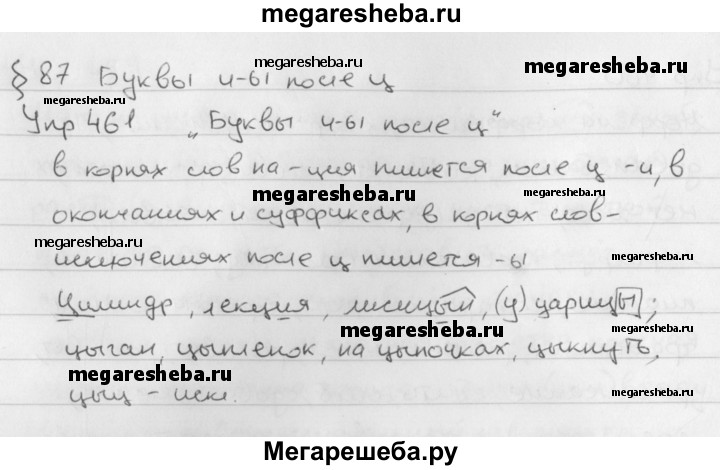 megaresheba.ru
§ 87 Буквы и-ы после ц
megaresheba.ru
megaresheba.ru
megaresheba.ru
megaresheba.ru
Упр 461 „Буквы и-ы после ц“
в корнях слов на -ция пишется после ц -и, в
megaresheba.ru
megaresheba.ru
окончаниях и суффиксах, в корнях слов-
megaresheba.ru
исключениях после ц пишется -ы
megaresheba.ru
Цилиндр, лекция, лисицын, (у) царицы;
megaresheba.ru
megaresheba.ru
цыган, цыпленок, на цыпочках, цыкнуть,
megaresheba.ru
цыц - искл.
megaresheba.ru
Мегарешеба.ру